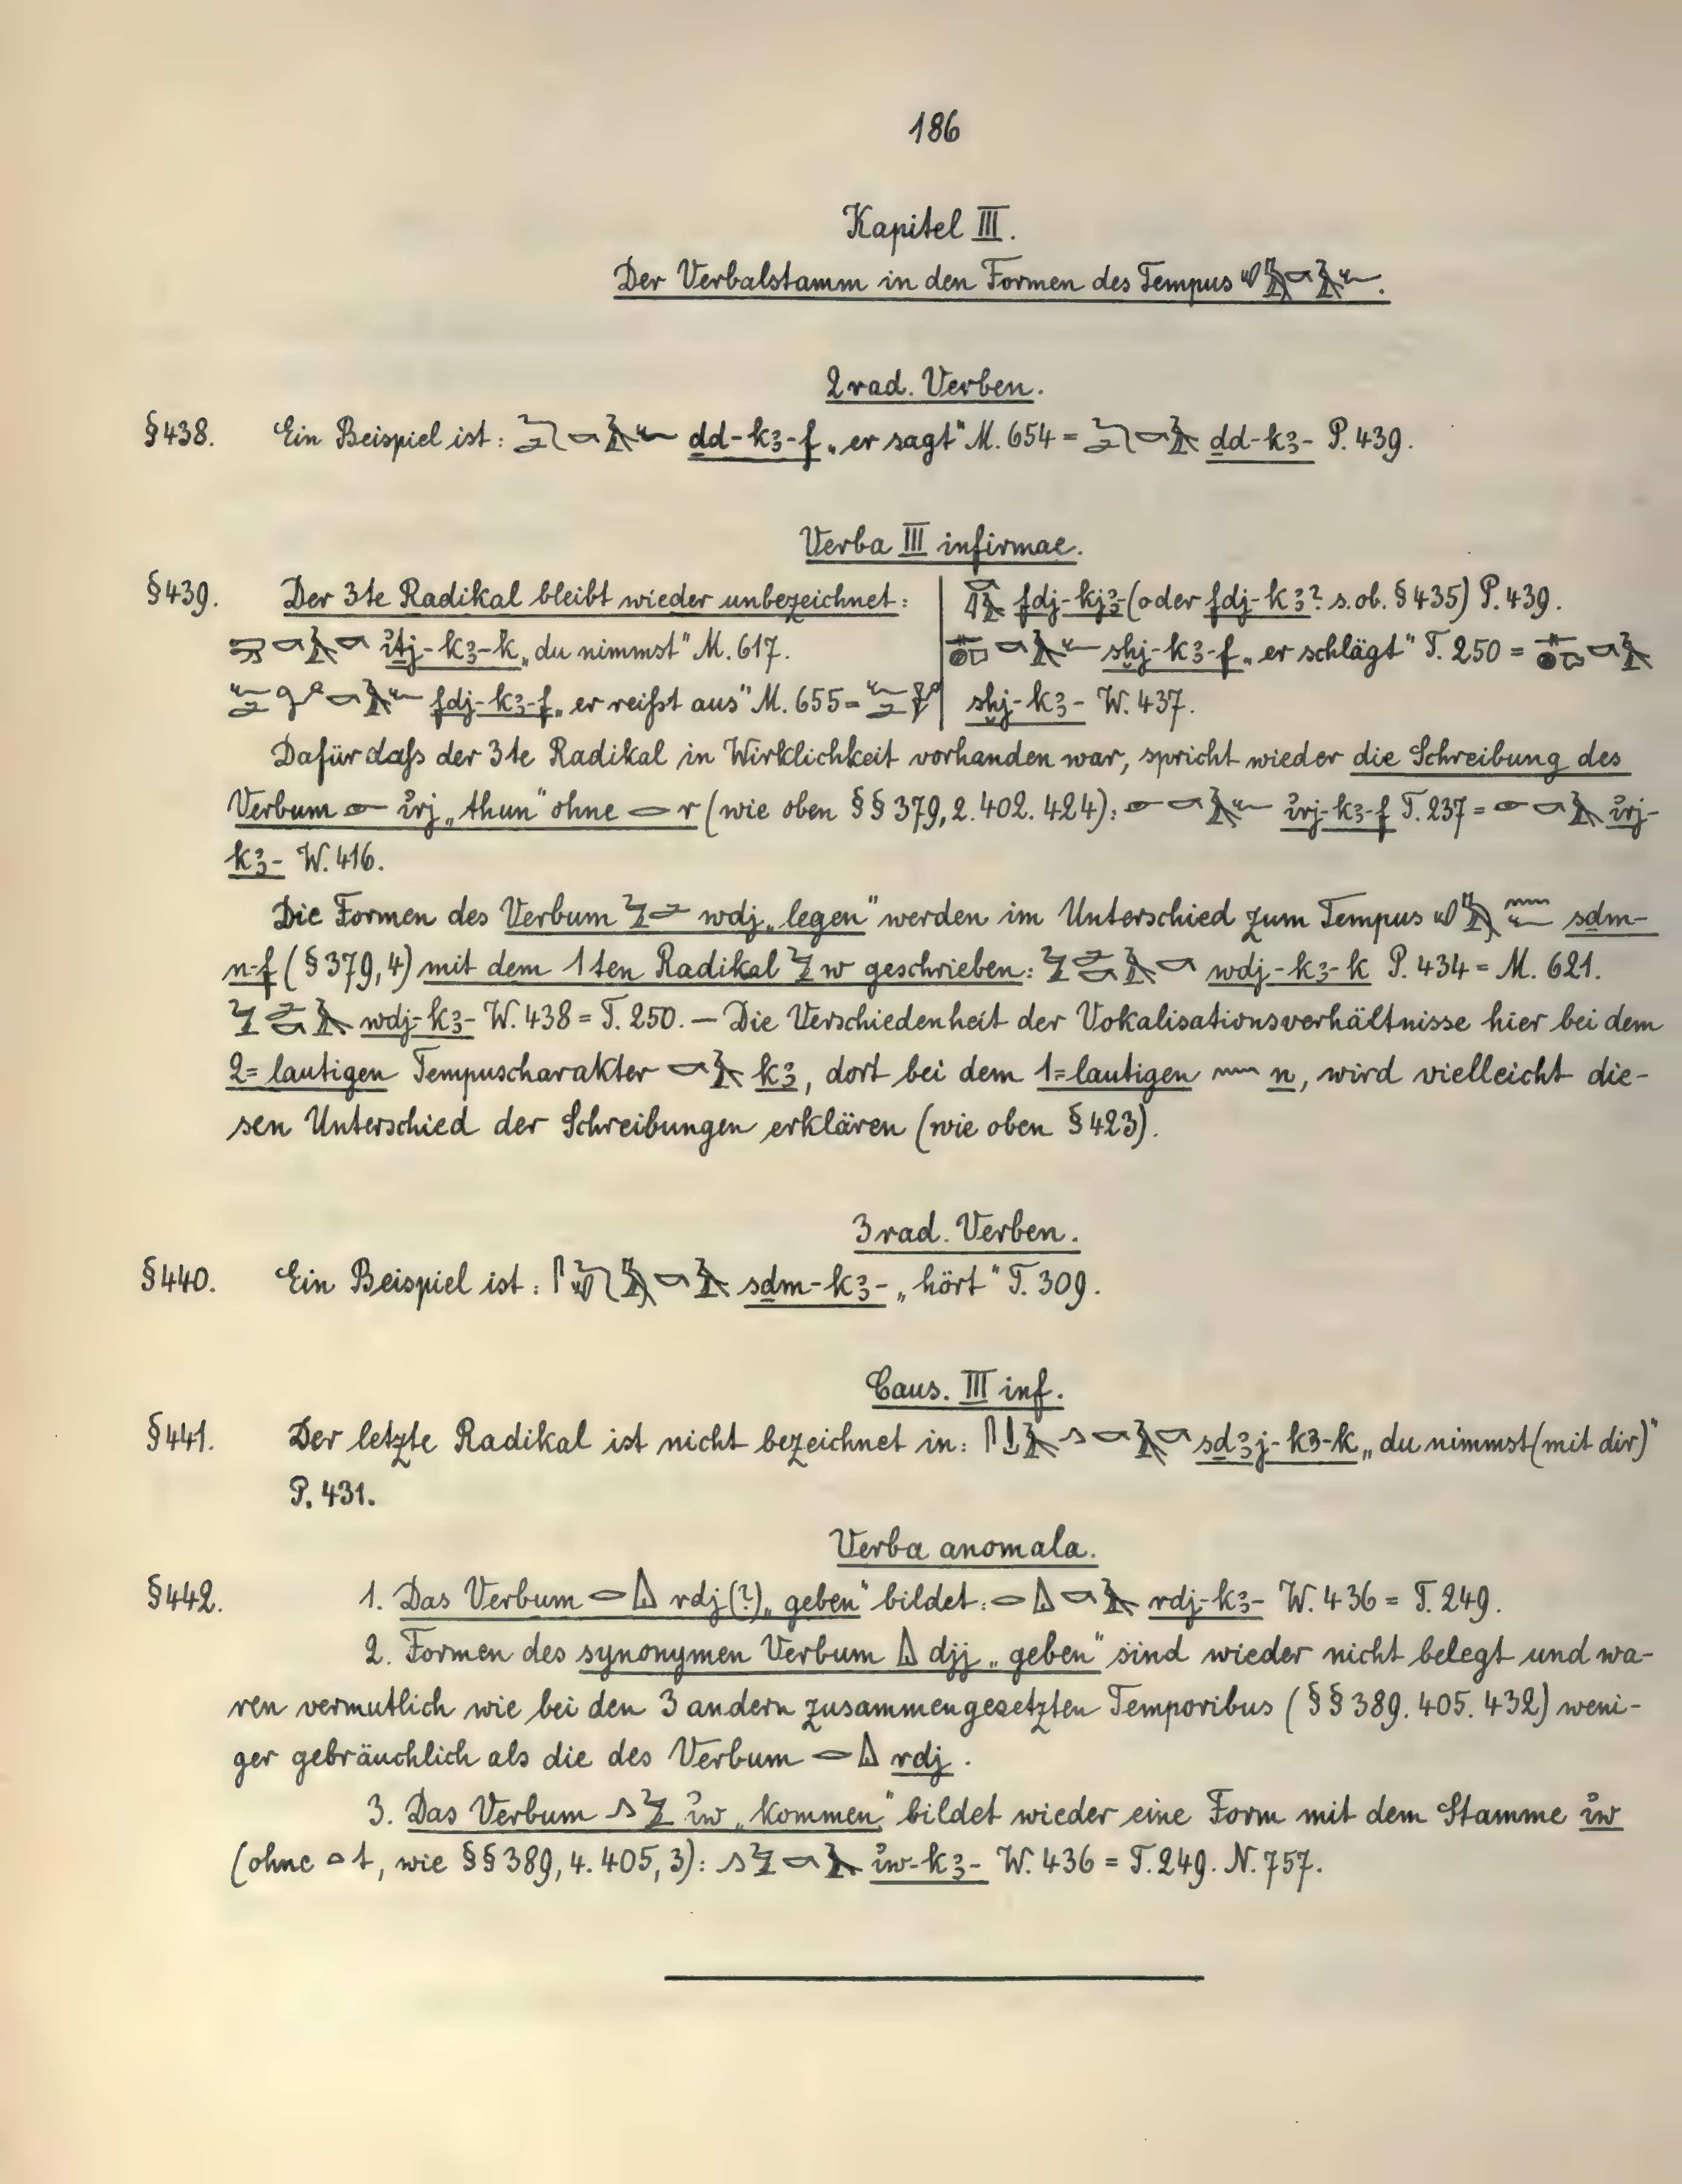 186
Kapitel III.
Der Verbalstamm in den Formen des Tempus
2rad. Verben.
§438. Ein Beispiel ist: ḏd-kꜣ-f „er sagt" M. 654 = ḏd-kꜣ- P. 439.
Verba III infirmae.
§439. Der 3te Radikal bleibt wieder unbezeichnet:
iṯj-kꜣ-k „du nimmst" M. 617.
fdj-kꜣ-f „er reißt aus" M. 655 =
fdj-kjꜣ- (oder fdj-kꜣ? s. ob. §435) P. 439.
sḫj-kꜣ-f „er schlägt" T. 250 =
sḫj-kꜣ- W. 437.
Dafür daſs der 3te Radikal in Wirklichkeit vorhanden war, spricht wieder die Schreibung des
Verbum irj „thun" ohne r (wie oben §§ 379, 2. 402. 424): irj-kꜣ-f T. 237 = irj-
kꜣ- W. 416.
Die Formen des Verbum wdj „legen" werden im Unterschied zum Tempus sḏm-
n-f (§ 379, 4) mit dem 1ten Radikal w geschrieben: wdj-kꜣ-k P. 434 = M. 621.
wdj-kꜣ- W. 438 = T. 250. — Die Verschiedenheit der Vokalisationsverhältnisse hier bei dem
2=lautigen Tempuscharakter kꜣ, dort bei dem 1=lautigen n, wird vielleicht die-
sen Unterschied der Schreibungen erklären (wie oben § 423).
3rad. Verben.
§440. Ein Beispiel ist: sḏm-kꜣ- „hört" T. 309.
Caus. III inf.
§441. Der letzte Radikal ist nicht bezeichnet in: sḏꜣj-kꜣ-k „du nimmst (mit dir)"
P. 431.
Verba anomala.
§442. 1. Das Verbum rdj (?) „geben" bildet: rdj-kꜣ- W. 436 = T. 249.
2. Formen des synonymen Verbum djj „geben" sind wieder nicht belegt und wa-
ren vermutlich wie bei den 3 andern zusammengesetzten Temporibus (§§ 389. 405. 432) weni-
ger gebräuchlich als die des Verbum rdj.
3. Das Verbum iw „kommen" bildet wieder eine Form mit dem Stamme iw
(ohne t, wie §§ 389, 4. 405, 3): iw-kꜣ- W. 436 = T. 249. N. 757.